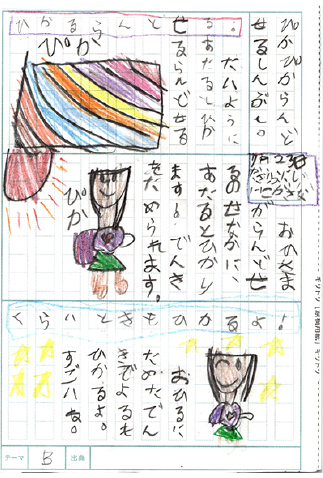 ぴかぴからんど
せるしんぶん。
たいように
あたるとひか
るらんどせる
ひかるらんと。
ぴか
おひさま
がらんどせ
るのせなかに、
あたるとひかり
ます。でんき
をためられます。
ぴか
くらいときもひかるよ!
おひるに
ためたでん
きでよるも
ひかるよ。
すごいね。
テーマ B 出典